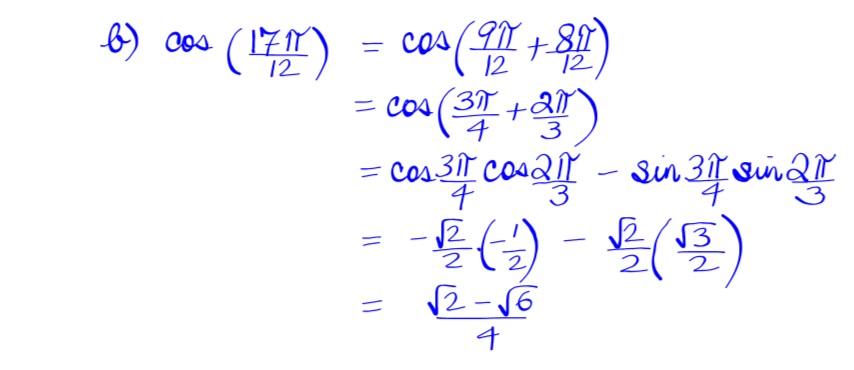 b) cos (17π/12) = cos(9π/12 + 8π/12)
= cos(3π/4 + 2π/3)
= cos 3π/4 cos 2π/3 − sin 3π/4 sin 2π/3
= −√2/2 · (−1/2) − √2/2 (√3/2)
= (√2 − √6)/4